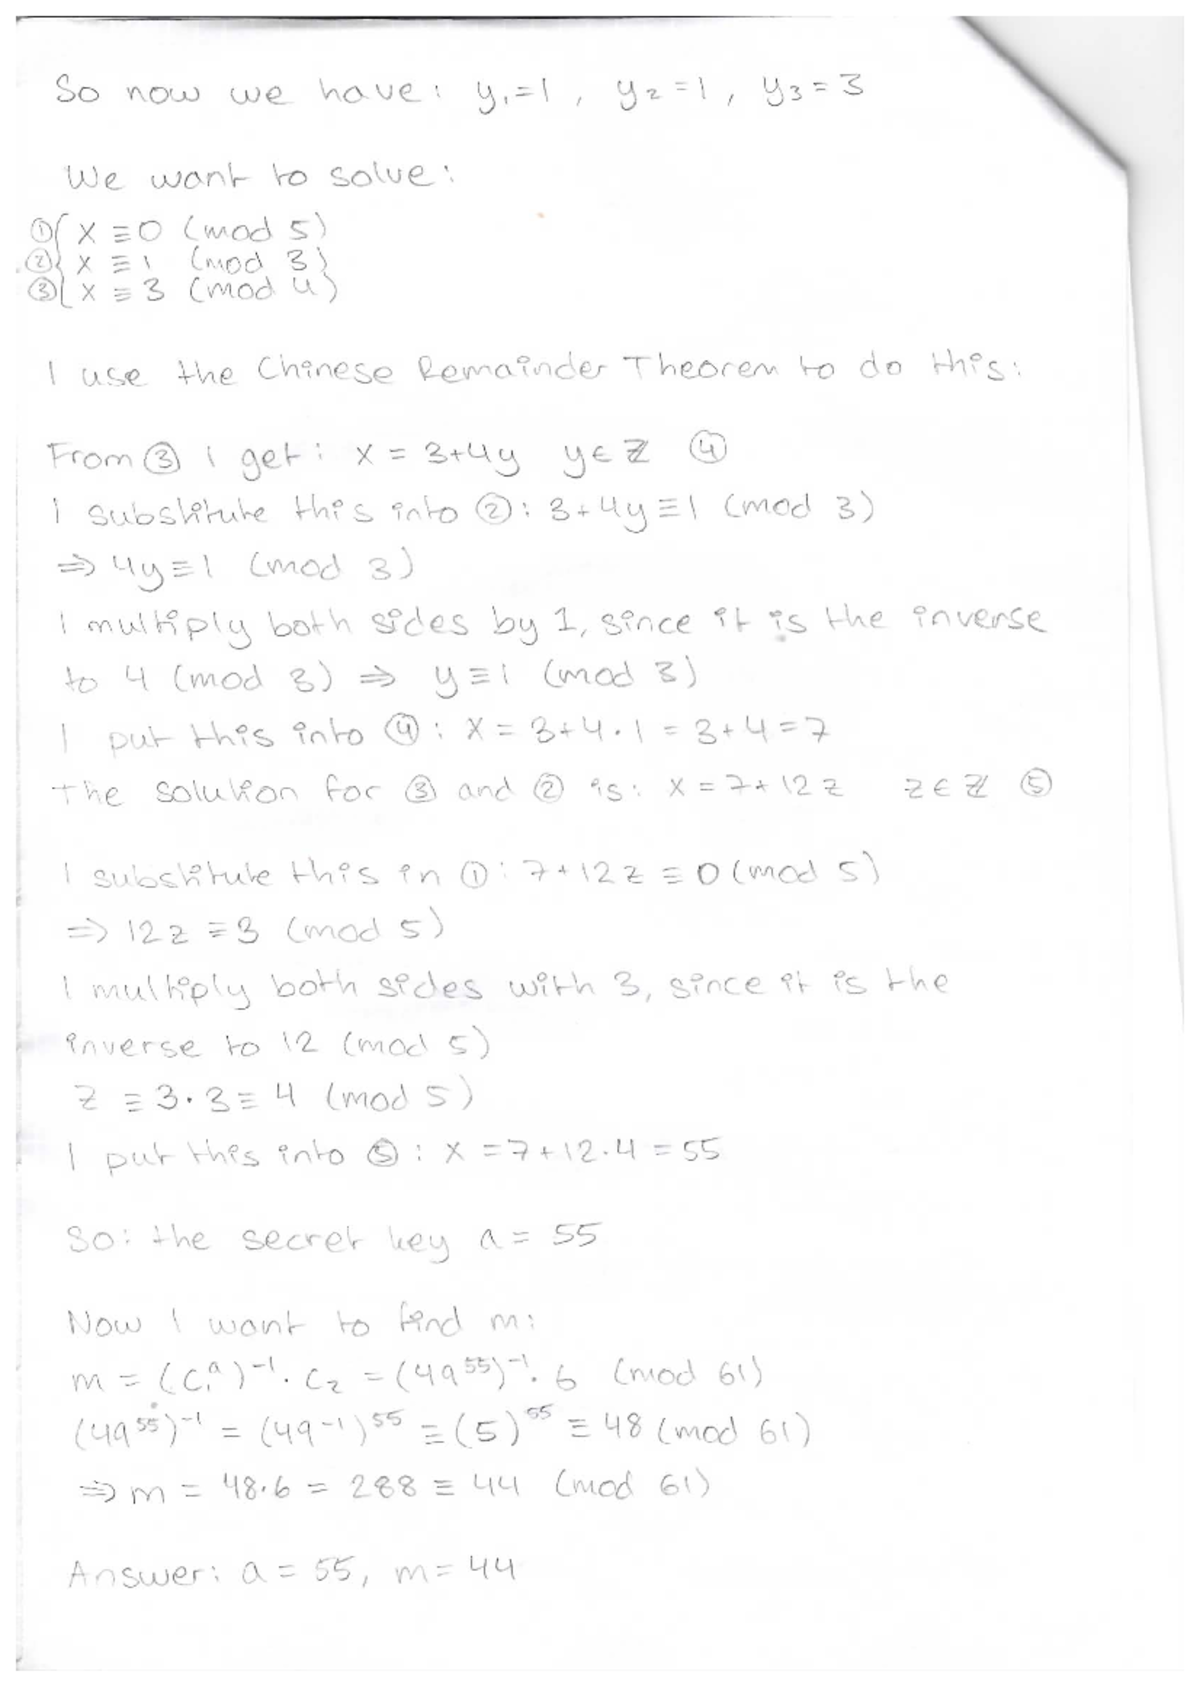 So now we have: y₁=1, y₂=1, y₃=3
We want to solve:
① { x ≡ 0 (mod 5)
② { x ≡ 1 (mod 3)
③ { x ≡ 3 (mod 4)
I use the Chinese Remainder Theorem to do this:
From ③ I get: x = 3+4y y∈ℤ ④
I substitute this into ②: 3+4y≡1 (mod 3)
⇒ 4y≡1 (mod 3)
I multiply both sides by 1, since it is the inverse
to 4 (mod 3) ⇒ y≡1 (mod 3)
I put this into ④: x = 3+4·1 = 3+4=7
The solution for ③ and ② is: x = 7+12z z∈ℤ ⑤
I substitute this in ①: 7+12z ≡ 0 (mod 5)
⇒ 12z ≡ 3 (mod 5)
I multiply both sides with 3, since it is the
inverse to 12 (mod 5)
z ≡ 3·3 ≡ 4 (mod 5)
I put this into ⑤: x = 7+12·4 = 55
So: the secret key a = 55
Now I want to find m:
m = (c₁ᵃ)⁻¹ · c₂ = (49⁵⁵)⁻¹ · 6 (mod 61)
(49⁵⁵)⁻¹ = (49⁻¹)⁵⁵ ≡ (5)⁵⁵ ≡ 48 (mod 61)
⇒ m = 48·6 = 288 ≡ 44 (mod 61)
Answer: a = 55, m = 44